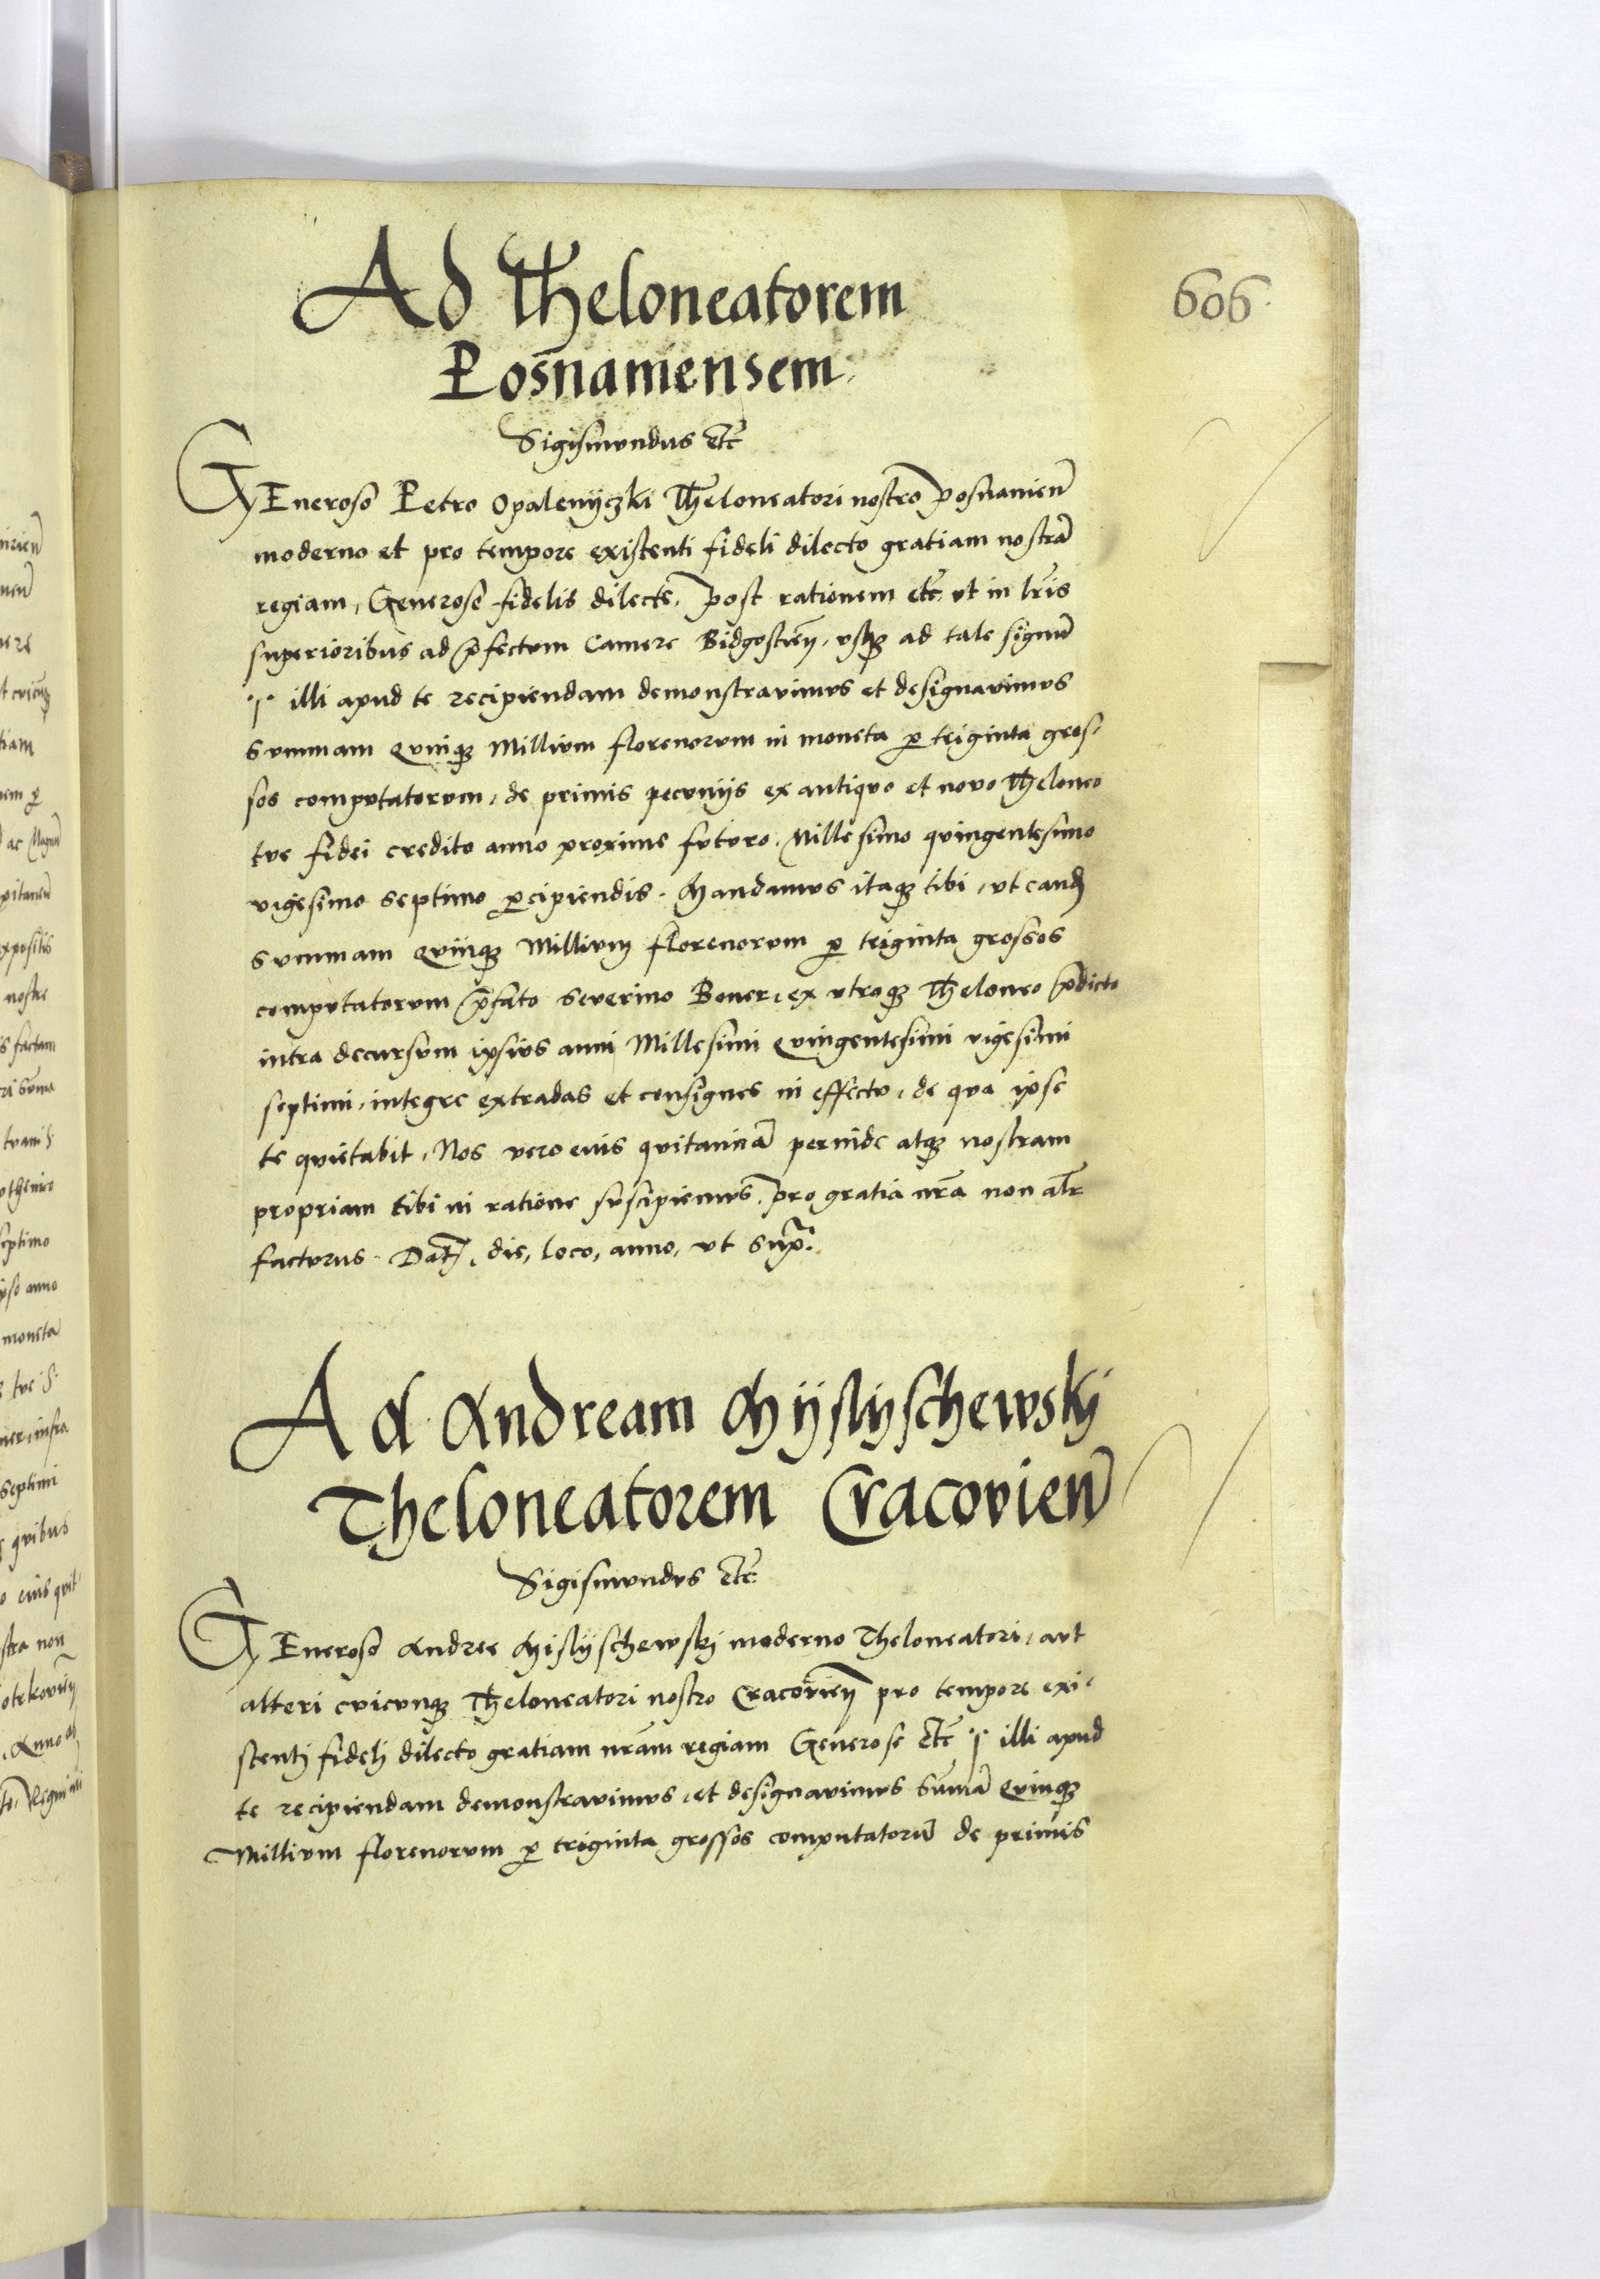 606
Ad Theloneatorem
Posnaniensem
Sigismundus etc̄
GEneroso Petro Opalenyczki Theloneatori nostro posnanien̄
moderno et pro tempore existenti fideli dilecto gratiam nostrā
regiam, Generose fidelis dilecte, post rationem etc̄ ut in lr̄is
superioribus ad p̄fectum Camere Bidgostien̄, usq; ad tale signū
illi apud te recipiendam demonstravimus et designavimus
summam quinq; Millium florenorum in moneta p̱ triginta gros-
sos computatorum, de primis pecunijs ex antiquo et novo Theloneo
tue fidei credito anno proxime futuro Millesimo quingentesimo
vigesimo septimo p̱cipiendis. Mandamus itaq; tibi, ut eand̄
summam quinq; Millium florenorum p̱ triginta grossos
computatorum p̄fato Severino Boner, ex utroq; Theloneo p̄dicto
intra decursum ipsius anni Millesimi quingentesimi vigesimi
septimi, integre extradas et consignes in effectu, de qua ipse
te quietabit, Nos vero eius quitanciā perinde atq; nostram
propriam tibi in ratione suscipiemus, pro gratia nr̄a non alr̄
facturus. Dat̄, die, loco, anno, ut supᵃ.
Ad Andream Myslyschewskj
Theloneatorem Cracovien̄
Sigismundus etc̄
GEneroso Andree Mislyschewskj moderno Theloneatori, aut
alteri cuicunq; Theloneatori nostro Cracovien̄ pro tempore exi-
stentj fidelj dilecto gratiam nr̄am regiam Generose etc̄ illi apud
te recipiendam demonstravimus, et designavimus sum̄ā quinq;
Millium florenorum p̱ triginta grossos computatorū de primis